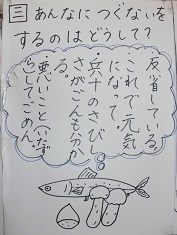 三 あんなに つぐないを
するのはどうして？
反省している。
・これで元気
になって。
・兵十のさびし
さがごんも分か
る。
・悪いことい たず
らしてごめん。